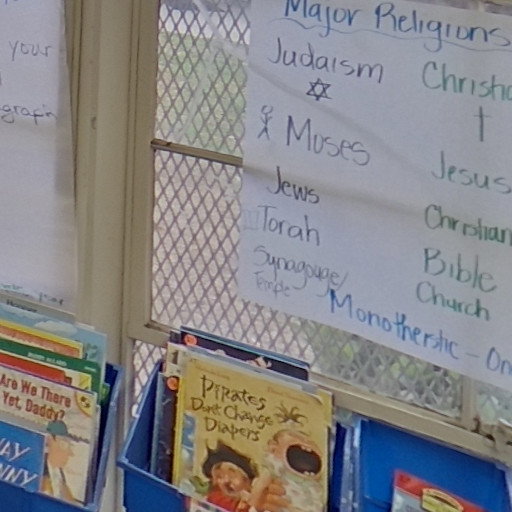 your
graph
Major Religions
Judaism
Moses
Jews
Torah
Synagouge/
Temple
Christia
Jesus
Christian
Bible
Church
Monotherstic - On
Are We There
Yet, Daddy?
AY
NNY
Pirates
Don't Change
Diapers